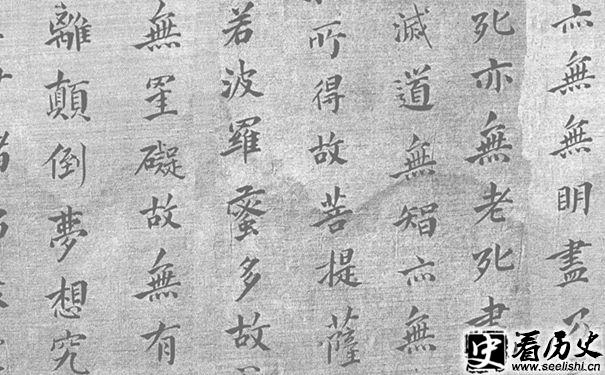 亦無無明盡乃
死亦無老死盡
滅道無智亦無
所得故菩提薩
若波羅蜜多故
無罣礙故無有
離顛倒夢想究
史 看历史
www.seelishi.cn